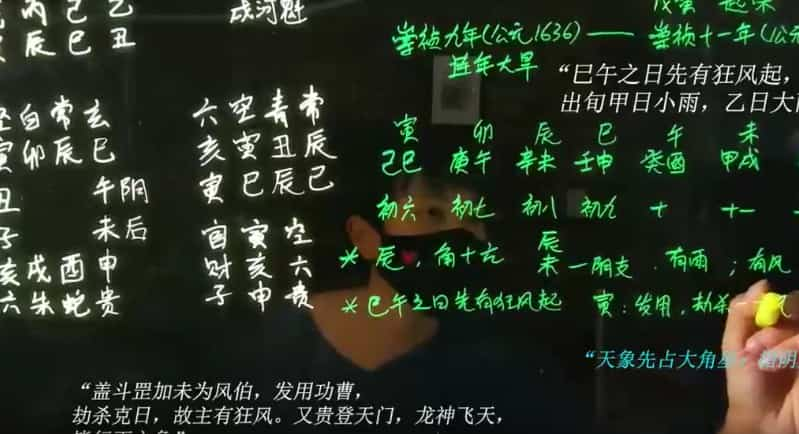 丙己乙
辰巳丑
戌河魁
崇祯九年(公元1636)——崇祯十一年(公元
连年大旱
“巳午之日先有狂风起，
出旬甲日小雨，乙日大雨
白常玄
寅卯辰巳
丑 午阴
子 未后
亥戌酉申
六朱蛇贵
六空青常
亥寅丑辰
寅巳辰巳
官寅空
财亥六
子申贵
寅 卯 辰 巳 午 未
己巳 庚午 辛未 壬申 癸酉 甲戌
初六 初七 初八 初九 十 十一
* 辰，角十六 辰未一阴支．有雨；有风
* 巳午之日先有狂风起 寅：发用，劫杀
“天象先占大角星，
“盖斗罡加未为风伯，发用功曹，
劫杀克日，故主有狂风。又贵登天门，龙神飞天，